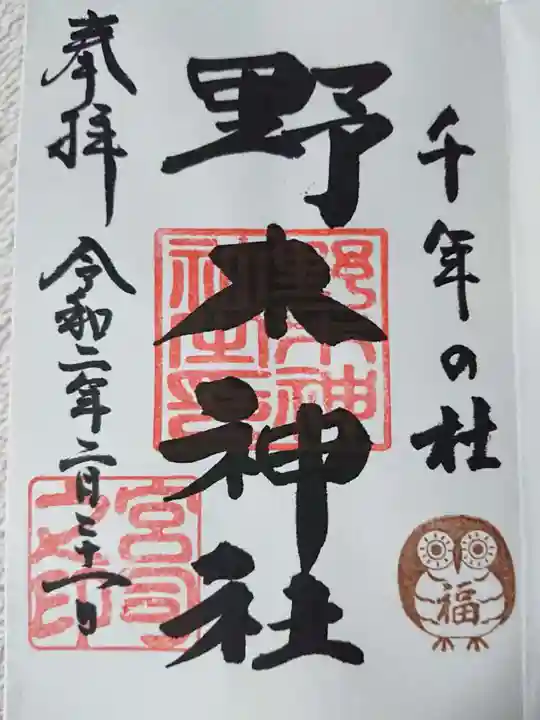 千年の杜
野木神社
奉拝 令和二年二月二十一日
野木神社之印
宮司之印
福